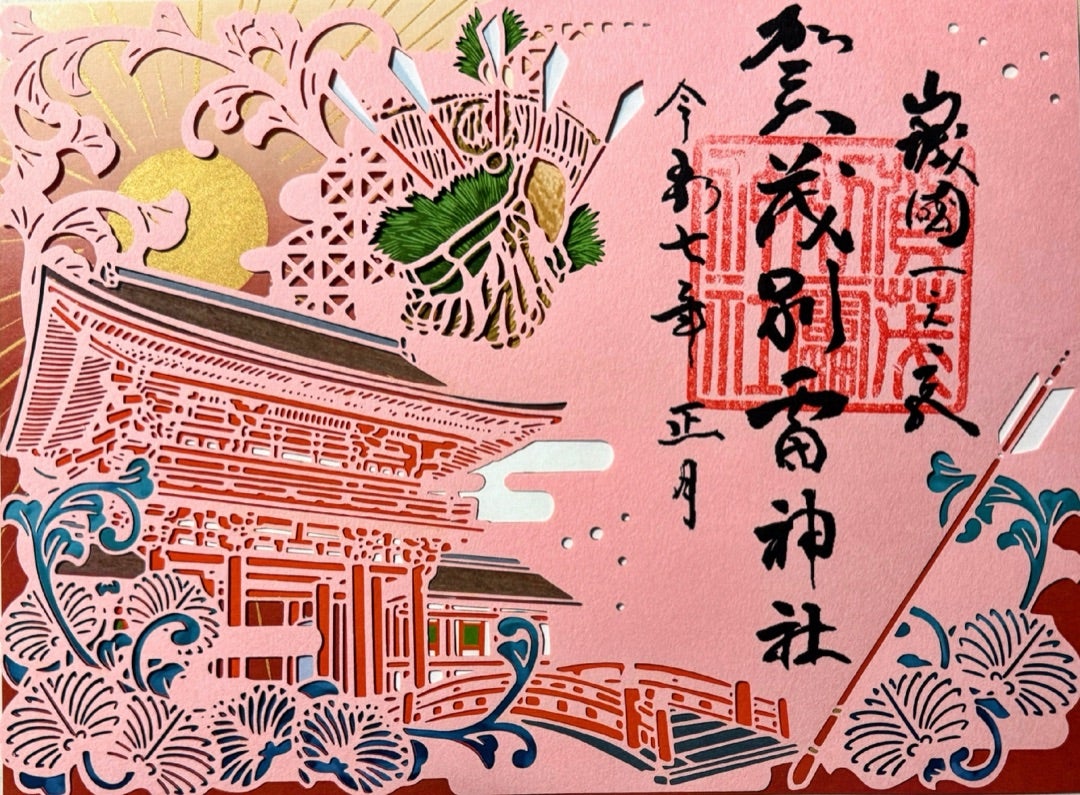 山城國一之宮
賀茂別雷神社
令和七年 正月
賀茂
別雷
神社